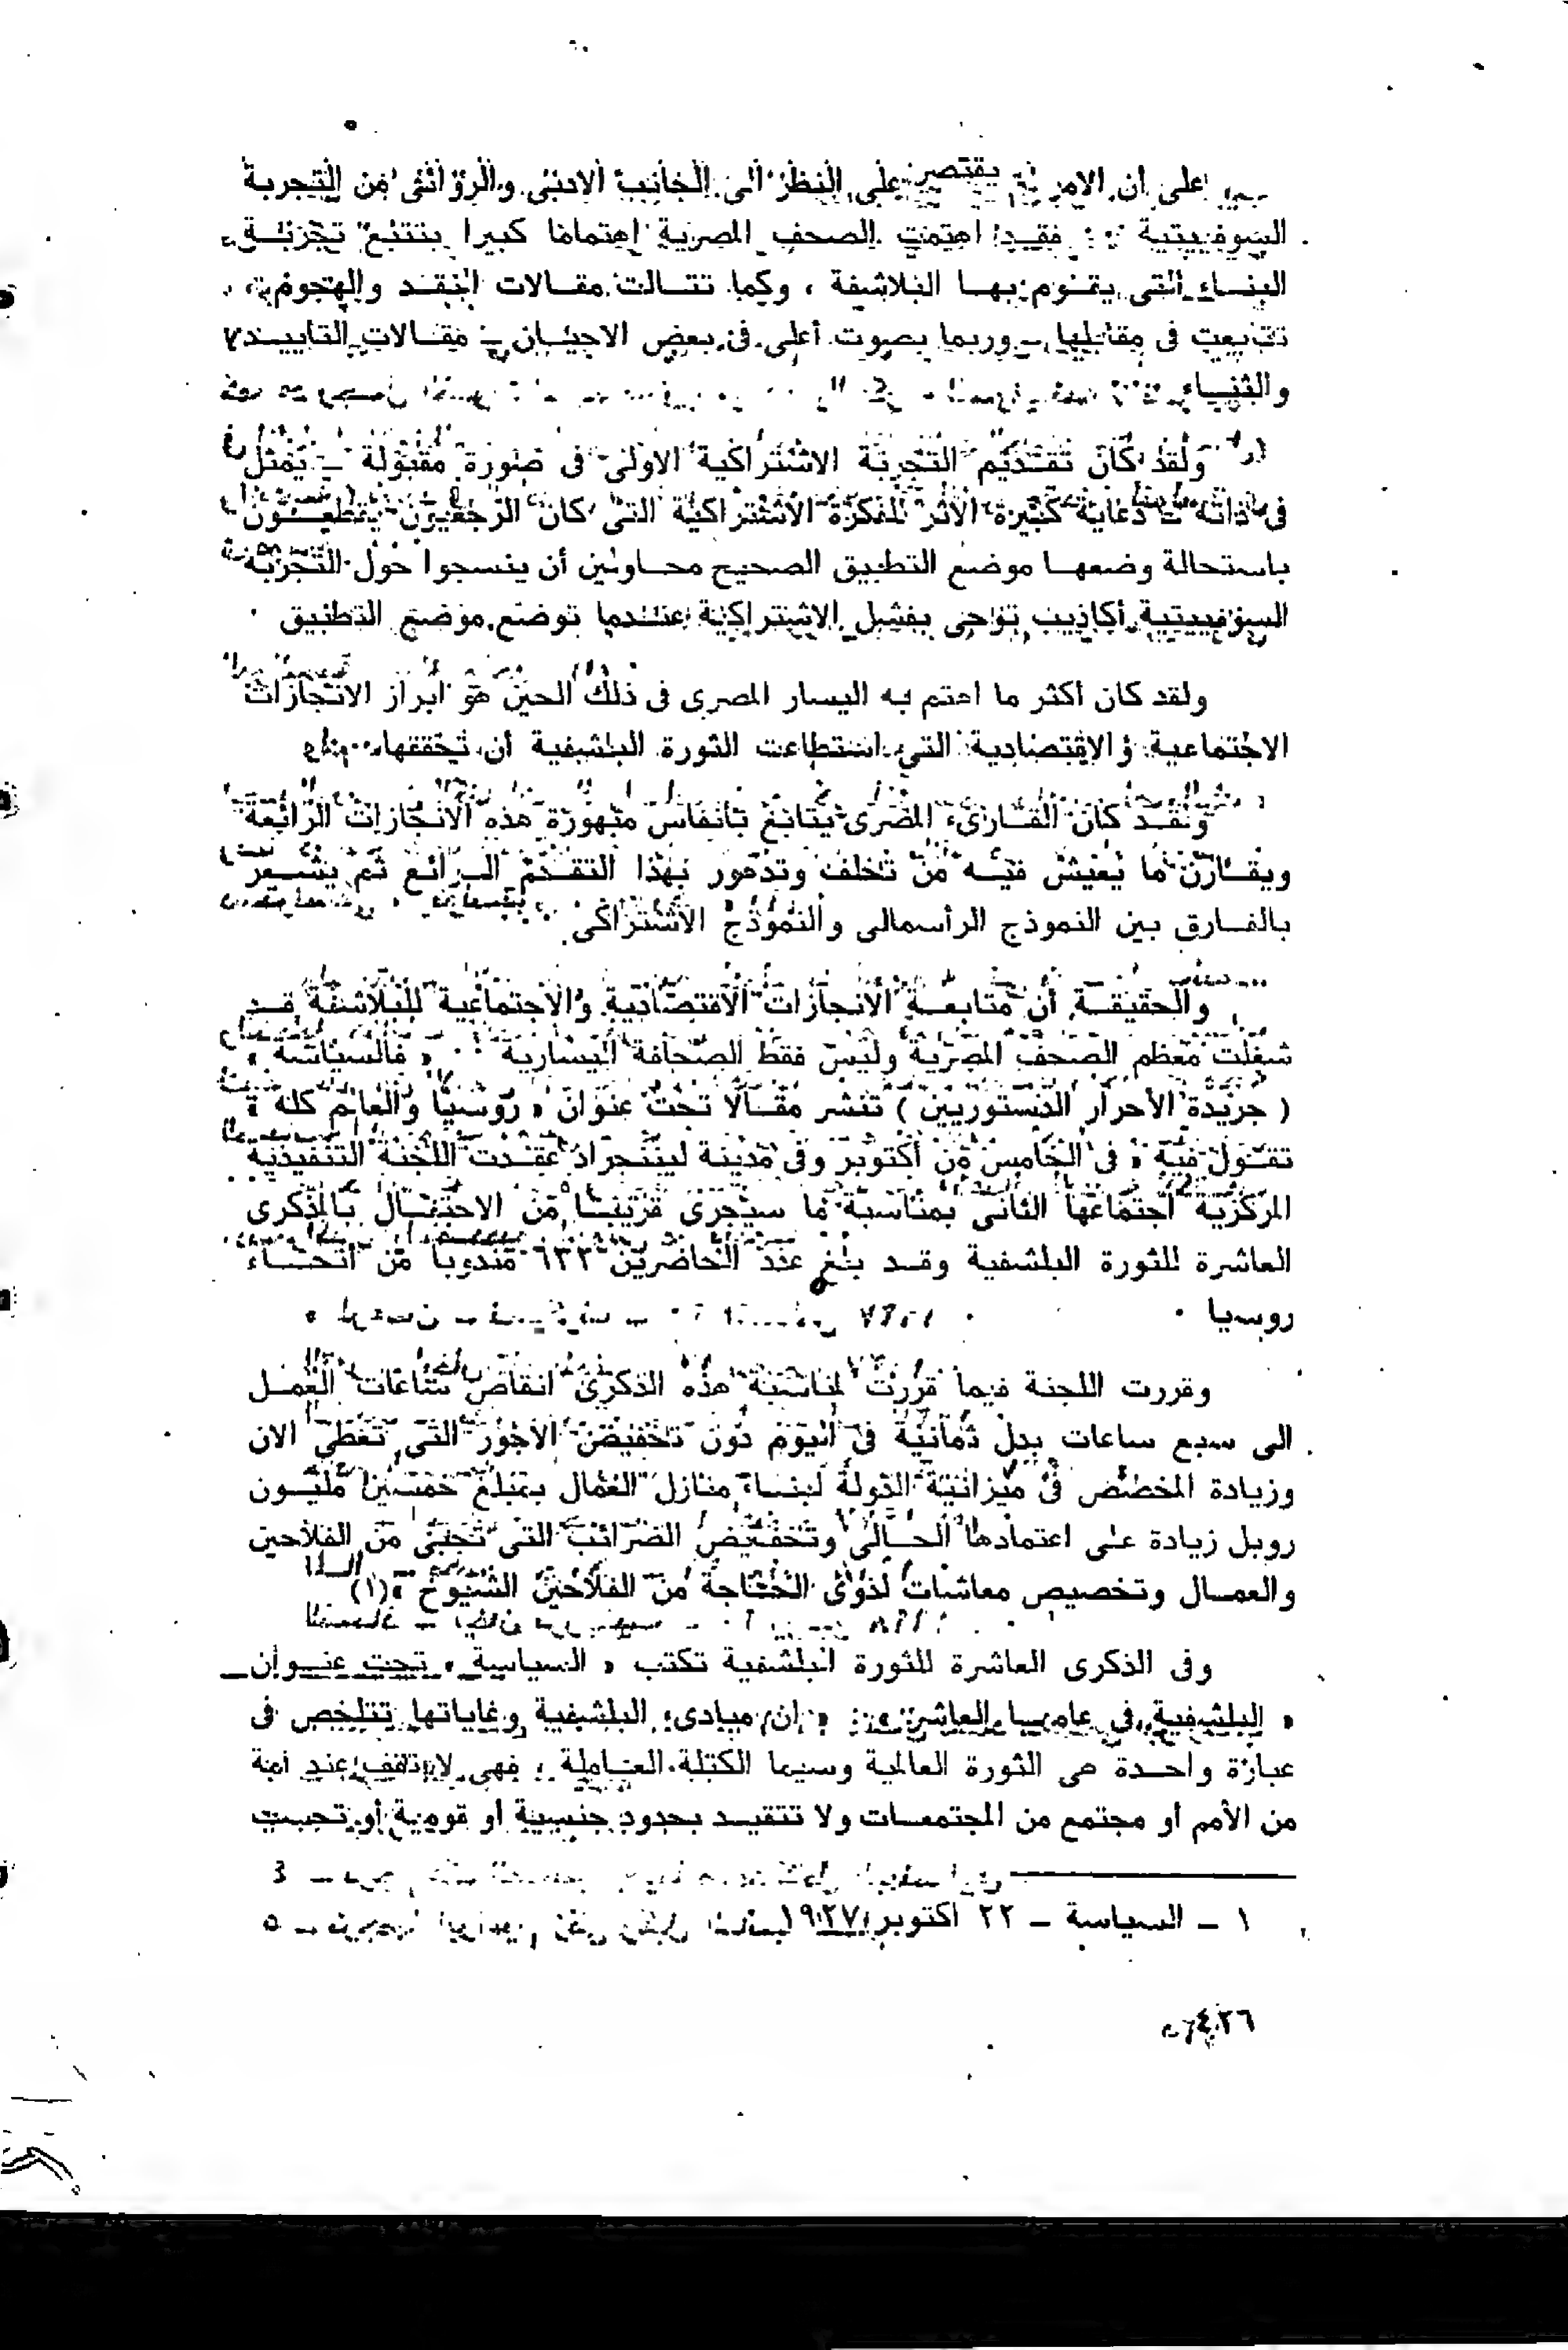 على ان الامر لم يقتصر على النظر الى الجانب الادبى والروائى من التجربة
السوفييتية ٠٠ فقد اهتمت الصحف المصرية اهتماما كبيرا بتتبع تجربة
البناء التى يقوم بها البلاشفة ، وكما تتالت مقالات النقد والهجوم
تتابعت فى مقابلها ـ وربما بصوت أعلى فى بعض الاحيان ـ مقالات التاييد
والثناء
ولقد كان تقديم التجربة الاشتراكية الاولى فى صورة مقبولة ـ يمثل
فى ذاته ـ دعاية كبيرة الأثر للفكرة الاشتراكية التى كان الرجعيون يقطعون
باستحالة وضعها موضع التطبيق الصحيح محاولين أن ينسجوا حول التجربة
السوفييتية أكاذيب توحى بفشل الاشتراكية عندما توضع موضع التطبيق ٠
ولقد كان أكثر ما اهتم به اليسار المصرى فى ذلك الحين هو ابراز الانجازات
الاجتماعية والاقتصادية التى استطاعت الثورة البلشفية أن تحققها
ولقد كان القارىء المصرى يتابع بأنفاس مبهورة هذه الانجازات الرائعة
ويقارن ما يعيش فيه من تخلف وتدهور بهذا التقدم الرائع ثم يشعر
بالفارق بين النموذج الرأسمالى والنموذج الاشتراكى
والحقيقة أن متابعة الانجازات الاقتصادية والاجتماعية للبلاشفة قد
شغلت معظم الصحف المصرية وليس فقط الصحافة اليسارية ٠٠ « فالسياسة »
( جريدة الأحرار الدستوريين ) تنشر مقالا تحت عنوان « روسيا والعالم كله »
تقول فيه « فى الخامس من أكتوبر وفى مدينة ليننجراد عقدت اللجنة التنفيذية
المركزية اجتماعها الثانى بمناسبة ما سيجرى قريبا من الاحتفال بالذكرى
العاشرة للثورة البلشفية وقد بلغ عدد الحاضرين ٦٣٣ مندوبا من انحاء
روسيا ٠
وقررت اللجنة فيما قررت لمناسبة هذه الذكرى انقاص ساعات العمل
الى سبع ساعات بدل ثمانية فى اليوم دون تخفيض الأجور التى تعطى الان
وزيادة المخصص فى ميزانية الدولة لبناء منازل العمال بمبلغ خمسين مليون
روبل زيادة على اعتمادها الحالى وتخفيض الضرائب التى تجبى من الفلاحين
والعمال وتخصيص معاشات لذوى الحاجة من الفلاحين الشيوخ »(١)
وفى الذكرى العاشرة للثورة البلشفية تكتب « السياسة » تحت عنوان
« البلشفية فى عامها العاشر » : « ان مبادىء البلشفية وغاياتها تتلخص فى
عبارة واحدة هى الثورة العالمية وسيما الكتلة العاملة ، فهى لا تقف عند أمة
من الأمم أو مجتمع من المجتمعات ولا تتقيد بحدود جنسية أو قومية أو
١ ـ السياسة ـ ٢٢ اكتوبر ١٩٢٧